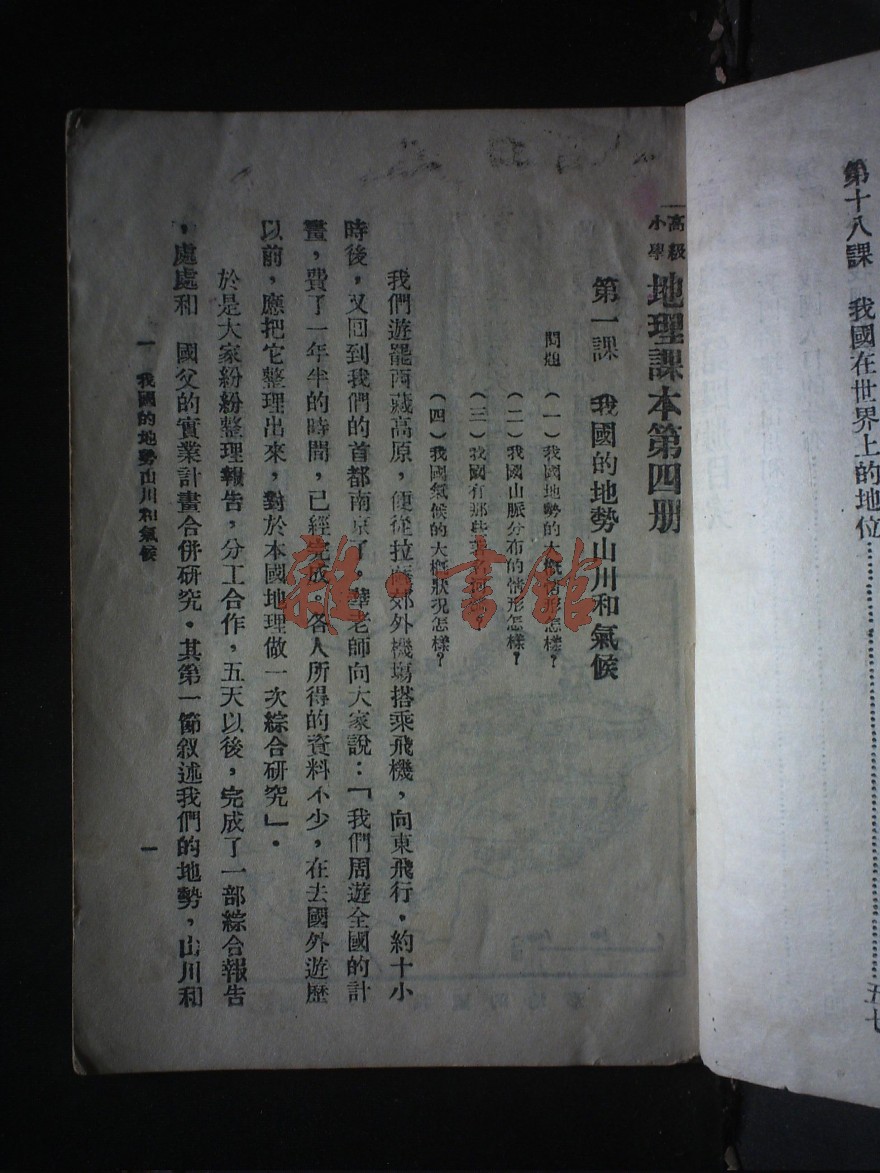 第十八課　我國在世界上的地位…………………五七
高級小學 地理課本第四册
第一課　我國的地勢山川和氣候
問題　(一)我國地勢的大概情形怎樣？
(二)我國山脈分布的情形怎樣？
(三)我國有那些著名河流？
(四)我國氣候的大概狀況怎樣？
我們遊罷西藏高原，便從拉薩郊外機場搭乘飛機，向東飛行．約十小
時後，又回到我們的首都南京了。華老師向大家說：「我們周遊全國的計
畫，費了一年半的時間，已經完成。各人所得的資料不少，在去國外遊歷
以前，應把它整理出來，對於本國地理做一次綜合研究」．
於是大家紛紛整理報告，分工合作，五天以後，完成了一部綜合報告
，處處和　國父的實業計畫合併研究．其第一節敘述我們的地勢，山川和
一　我國的地勢山川和氣候
一
雜·書館